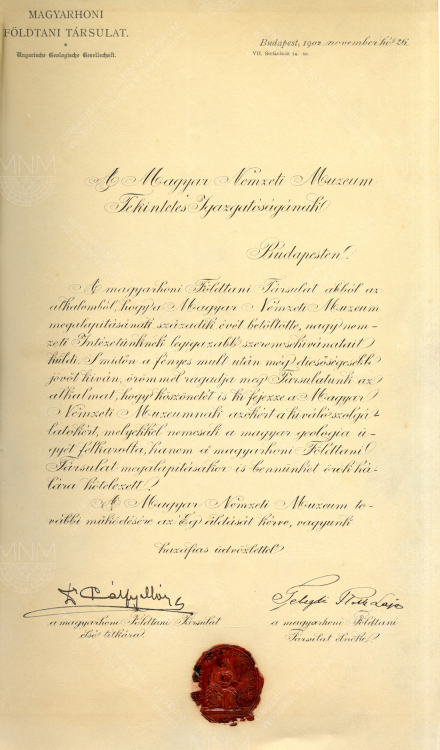 MAGYARHONI
FÖLDTANI TÁRSULAT.
Ungarische Geologische Gesellschaft.
Budapest, 1902 november hó 26.
VII. Stefánia-út 14. sz.
A Magyar Nemzeti Muzeum
Tekintetes Igazgatóságának
Budapesten.
A magyarhoni Földtani Társulat abból az
alkalomból, hogy a Magyar Nemzeti Muzeum
megalapításának századik évét betöltötte, nagy nem-
zeti Intézetünknek legigazabb szerencsekivánatait
küldi. S midőn a fényes mult után még dicsőségesebb
jövőt kiván, örömmel ragadja meg Társulatunk az
alkalmat, hogy köszönetét is kifejezze a Magyar
Nemzeti Muzeumnak azokért a kiváló szolgá-
latokért, melyekkel nemcsak a magyar geologia ü-
gyét felkarolta, hanem a magyarhoni Földtani
Társulat megalapításakor is bennünket örök há-
lára kötelezett.
A Magyar Nemzeti Muzeum to-
vábbi működésére az Ég áldását kérve, vagyunk
hazafias üdvözlettel
Dr Pálfy Mór
Telegdi Roth Lajos
a magyarhoni Földtani Társulat
első titkára.
a magyarhoni Földtani
Társulat elnöke.
MNM
MNM